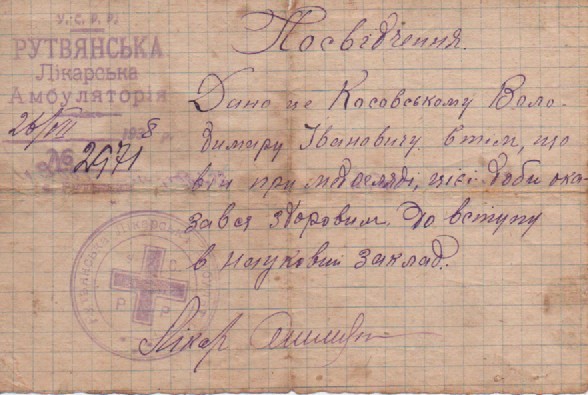 У.С.Р.Р.
РУТВЯНСЬКА
Лікарська
Амбуляторія
26/VII 1938 р.
№ 2971
Посвідчення.
Дано це Косовському Воло-
димиру Івановичу в тім, що
він при медогляді, цієї доби ока-
зався здоровим до вступу
в науковий заклад.
Лікар
У С
Р Р